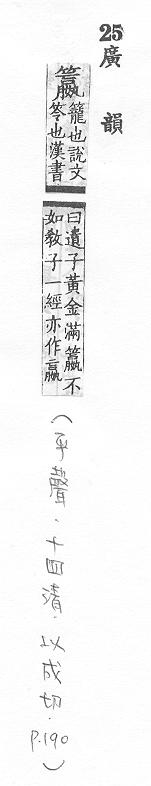 25廣韻
籯籠也說文
笭也漢書
曰遺子黃金滿籯不
如教子一經亦作籝
(平聲．十四清．以成切．P.190)